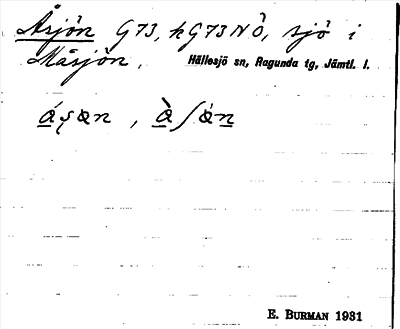 Åsjön G73, hG73NÖ, sjö i
Måsjön, Hällesjö sn, Ragunda tg, Jämtl. l.
E. BURMAN 1931